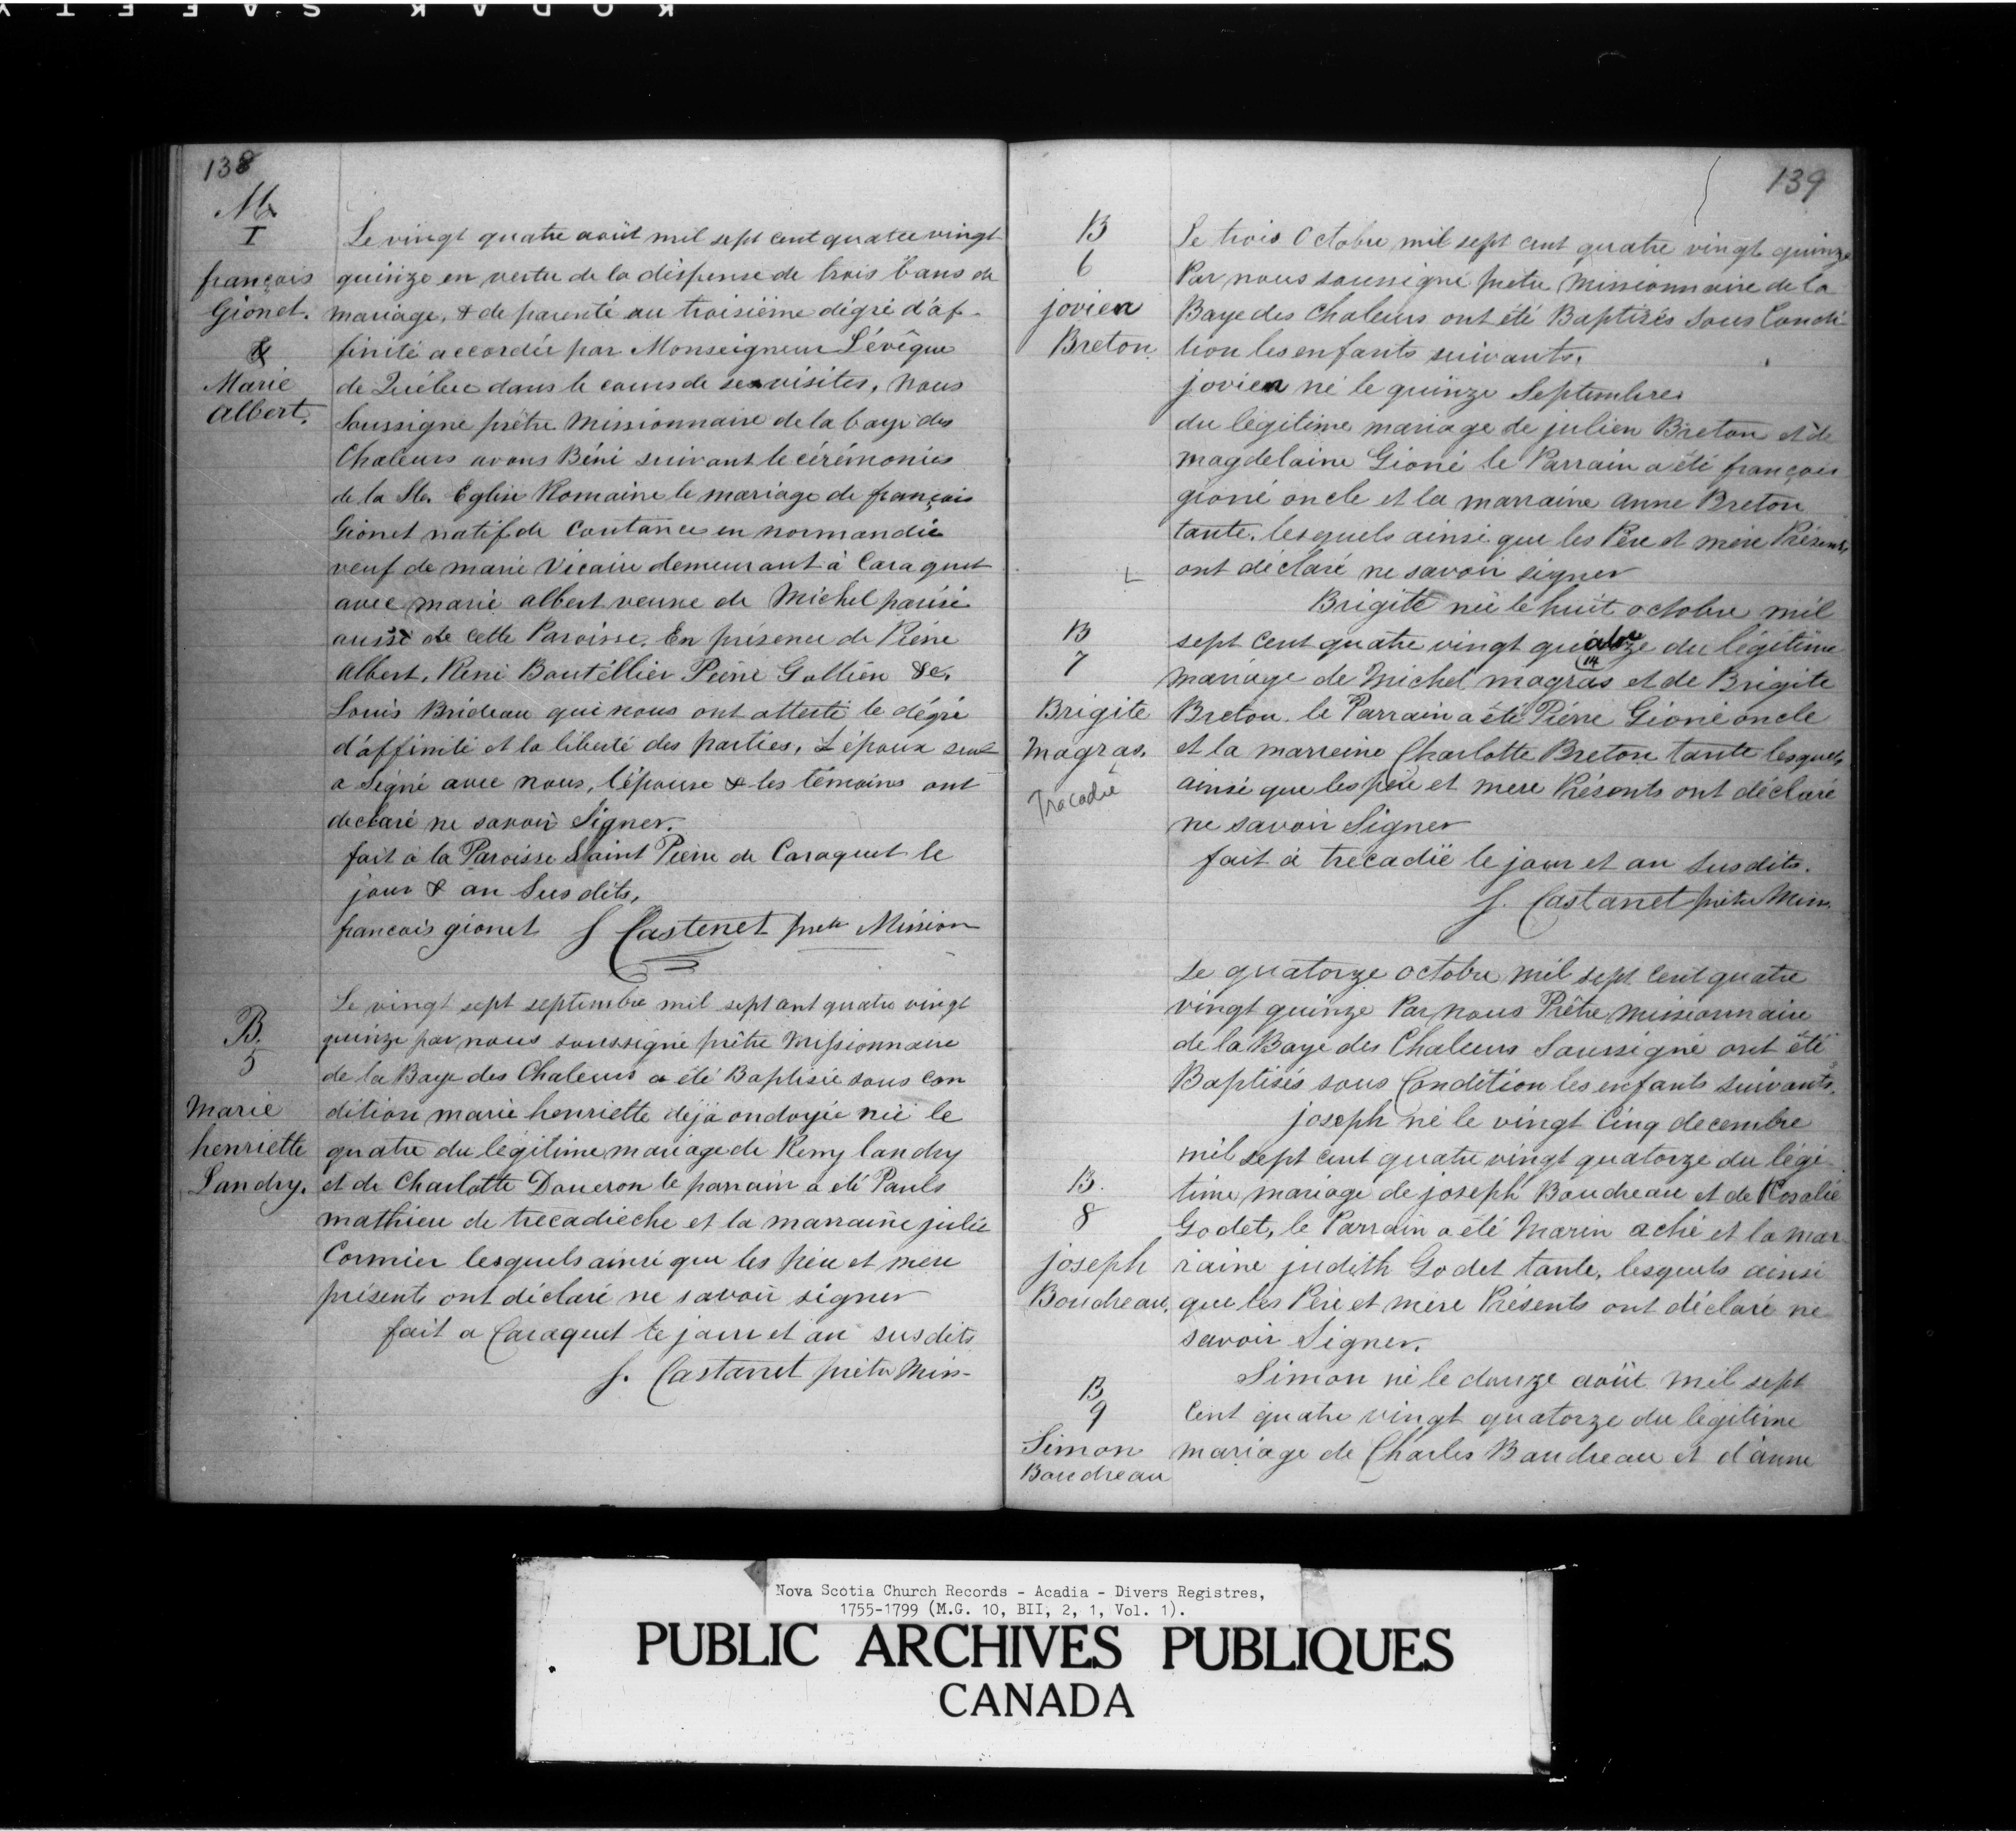 KODAK SAFETY
138
M
I
françois
Gionet.
&
Marie
albert.
Le vingt quatre août mil sept cent quatre vingt
quinze en vertu de la dispense de trois bans de
mariage, & de parenté au troisième dégré d'af-
finité accordée par Monseigneur L'évêque
de Québec dans le cours de ses visites, nous
Soussigné prêtre Missionnaire de la baye des
Chaleurs avons Béni suivant le cérémonies
de la Ste Eglise Romaine le mariage de françois
Gionet natif de Coutance en normandie
veuf de marie Vicaire demeurant à Caraquet
avec marie albert veuve de Michel parisé
aussi de cette Paroisse. En présence de Piérre
Albert, René Boutéllier Piérre Gallien &
Louis Brideau qui nous ont attesté le dégré
d'affinité et la liberté des parties, L'époux seul
a Signé avec nous, l'épouse & les témoins ont
declaré ne savoir Signer.
fait à la Paroisse Saint Pierre de Caraquet le
jour & an Susdits,
francois gionet J Castenet prêtre Mission
B.
5
Marie
henriette
Landry.
Le vingt sept septembre mil sept cent quatre vingt
quinze par nous soussigné prêtre missionnaire
de la Baye des Chaleurs a été Baptisée sous con
dition marie henriette déjà ondoyée née le
quatre du légitime mariage de Remy landry
et de Charlotte Doueron le parrain a été Pauls
mathieu de trecadieche et la marraine julie
Cormier lesquels ainsi que les père et mere
présents ont déclaré ne savoir signer
fait a Caraquet le jour et an susdits
J. Castanet prêtre Miss-
139
B
6
jovien
Breton.
Le trois Octobre mil sept cent quatre vingt quinze
Par nous soussigné pretre Missionnaire de la
Baye des Chaleurs ont été Baptisés Sous Condi-
tion les enfants suivants.
jovien né le quinze Septembre
du légitime mariage de julien Breton et de
magdelaine Gioné le Parrain a été françois
gioné oncle et la marraine anne Breton
tante, lesquels ainsi que les Père et mère Présents
ont déclaré ne savoir signer
B
7
Brigite
Magras.
Tracadie
Brigite née le huit octobre mil
sept cent quatre vingt quatorze du légitime
14
mariage de Michel magras et de Brigite
Breton. le Parrain a été Piérre Gioné oncle
et la marreine Charlotte Breton tante lesquels
ainsi que les père et mere Présents ont déclaré
ne savoir Signer
fait à trecadie le jour et an susdits.
J. Castanet prêtre Miss.
Le quatorze octobre mil sept cent quatre
vingt quinze Par nous Prêtre missionnaire
de la Baye des Chaleurs Soussigné ont été
Baptisés sous Condition les enfants suivants.
joseph né le vingt Cinq decembre
mil sept cent quatre vingt quatorze du légi-
B.
8
joseph
Boudreau.
time mariage de joseph Boudreau et de Rosalie
Godet, le Parrain a été Marin aché et la mar
raine judith Godet tante, lesquels ainsi
que les Père et mère Présents ont déclaré ne
savoir Signer.
B
9
Simon
Boudreau
Simon né le douze août mil sept
Cent quatre vingt quatorze du légitime
mariage de Charles Boudreau et d'anne
Nova Scotia Church Records - Acadia - Divers Registres,
1755-1799 (M.G. 10, BII, 2, 1, Vol. 1).
PUBLIC ARCHIVES PUBLIQUES
CANADA